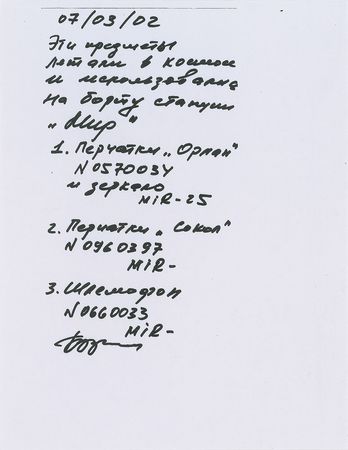 07/03/02
Эти предметы
летали в космос
и использовались
на борту станции
„Мир"
1. Перчатки „Орлан"
N0570034
и зеркало
MiR-25
2. Перчатки „Сокол"
N0960397
MiR-
3. Шлемофон
N0660033
MiR-